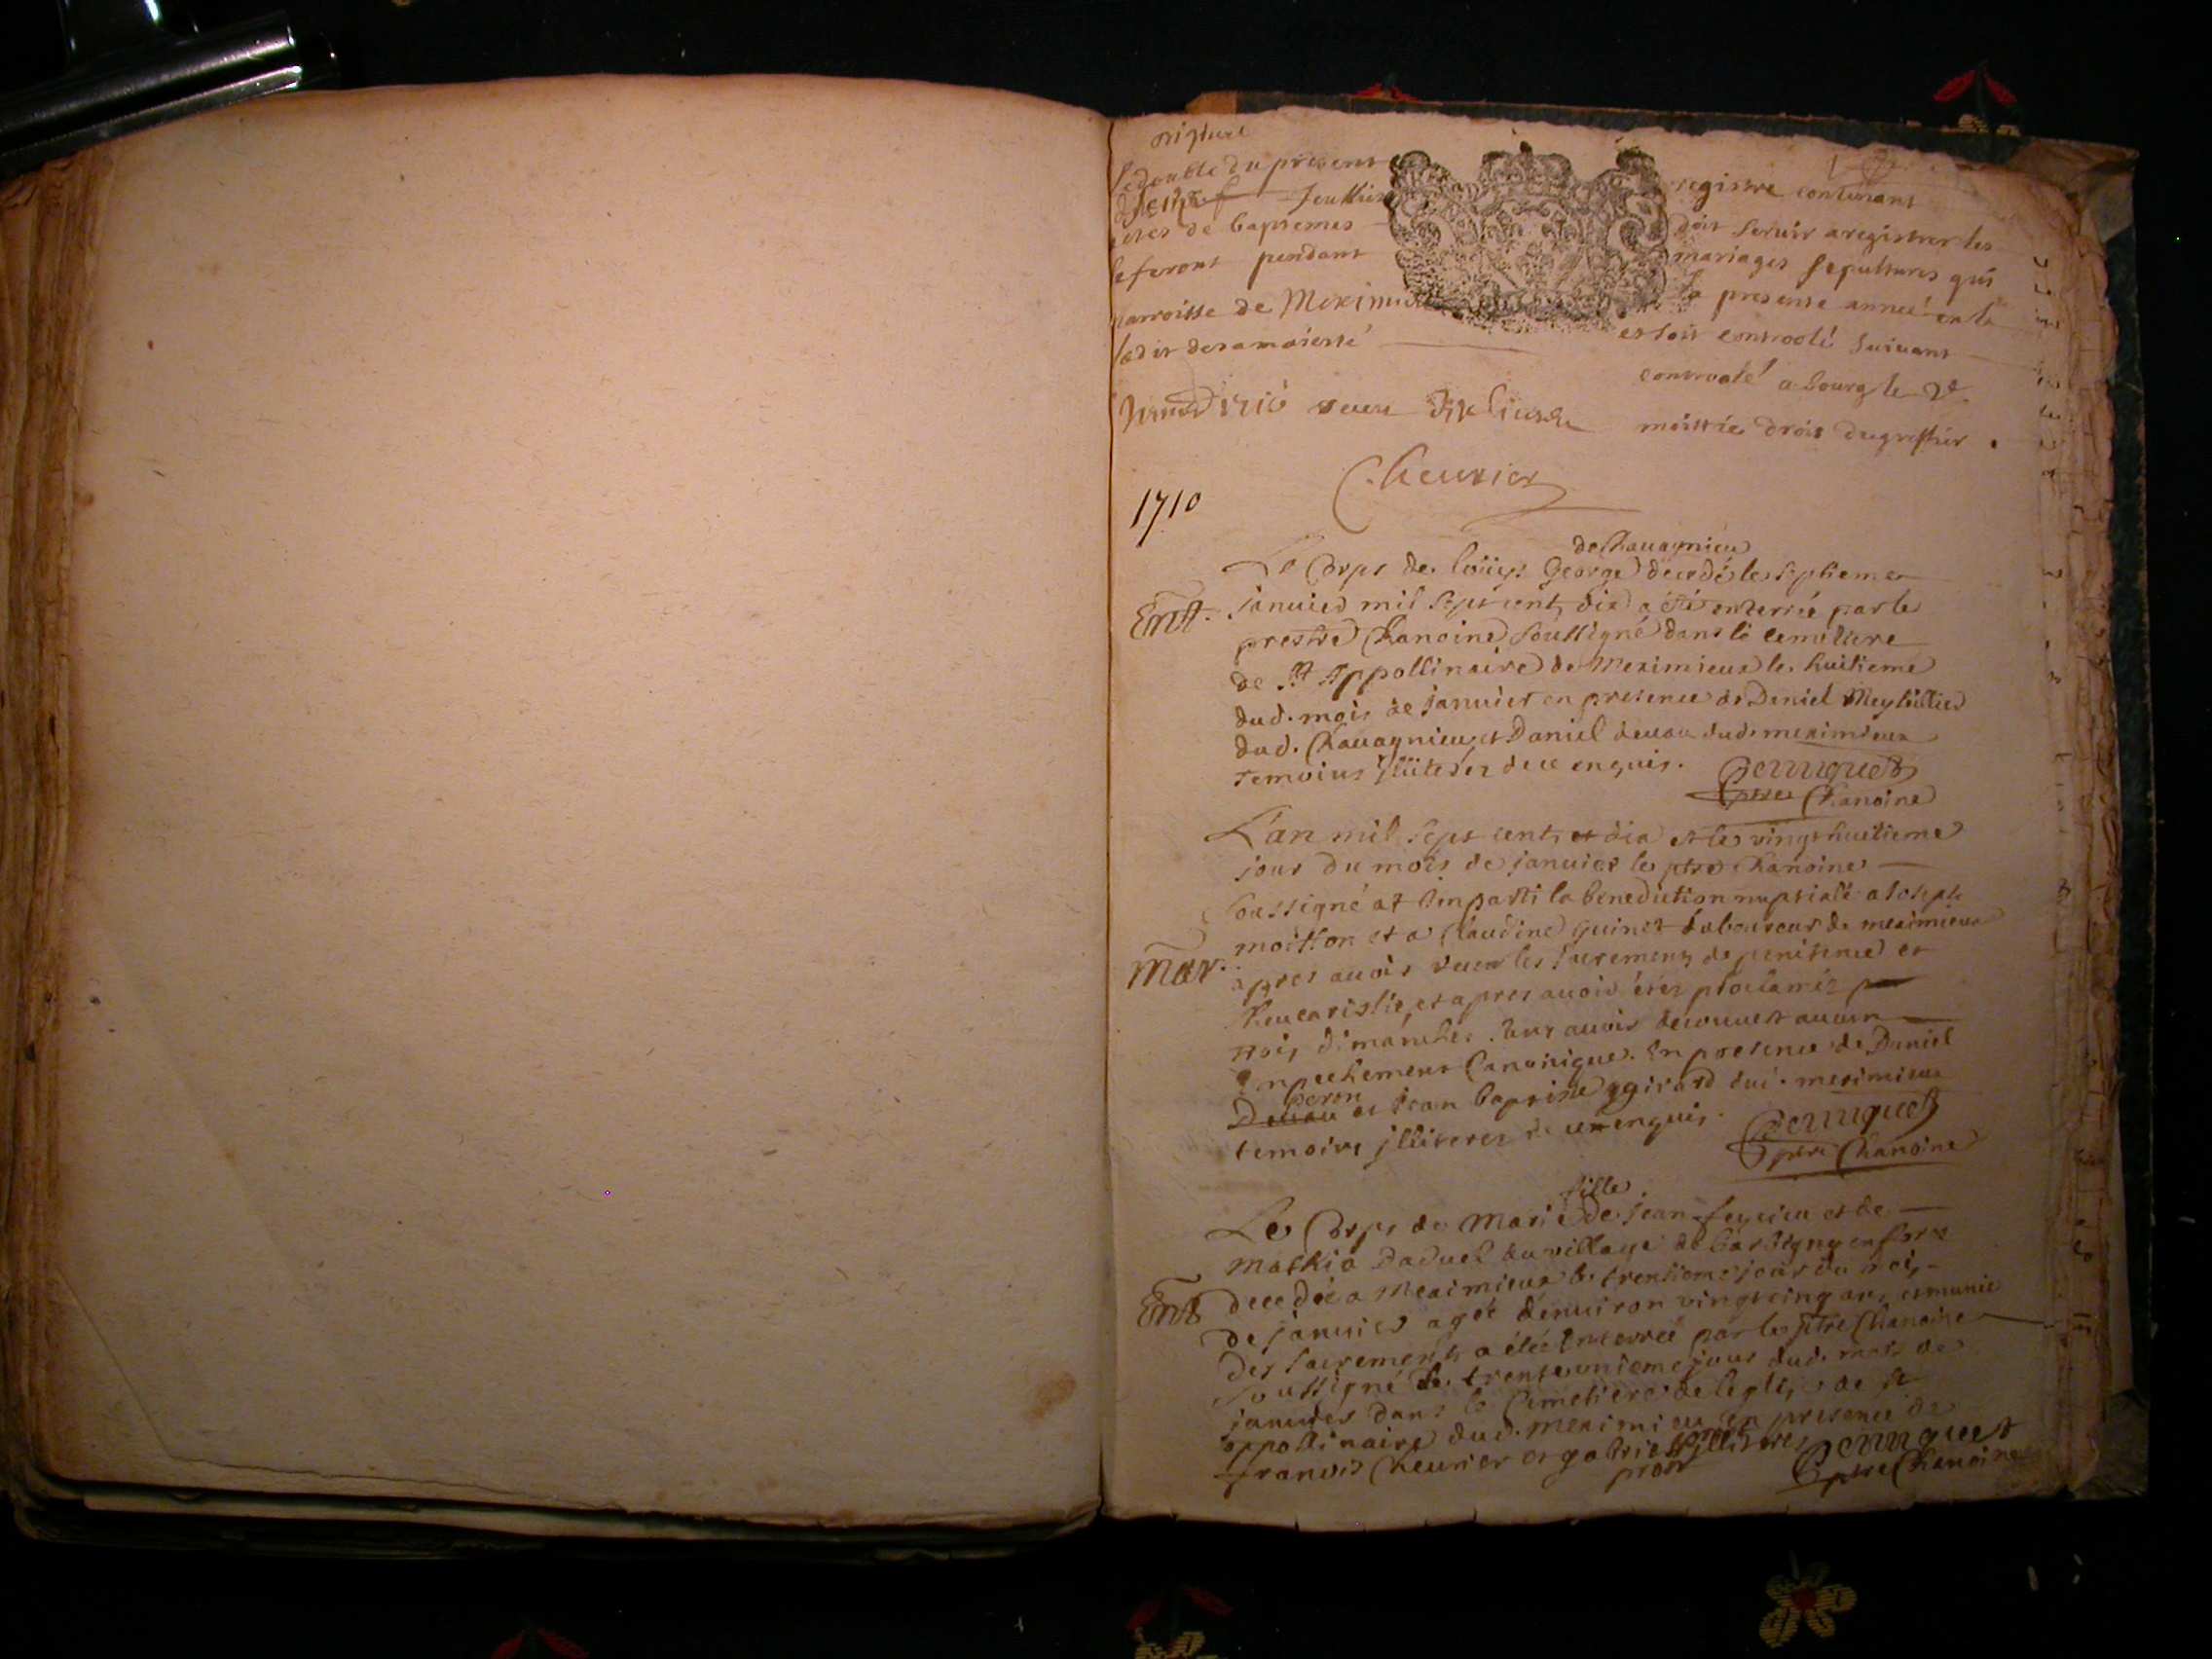 le double du present registre contenant
feuillets doit servir a registrer les
actes de baptemes mariages sepultures qui
se feront pendant la presente année en la
parroisse de Meximieux et soit controolé suivant
ledit de sa maiesté controolé a bourg le
1710 moittie droit du greffier
Cheurier
1710
de Chauagnieu
Le Corps de loüys George decedé le septieme
Ent. januier mil sept cent dix a été enterrée par le
prestre Chanoine soussigné dans le cemetiere
de St Appollinaire de Meximieux le huitieme
dud. mois de januier en presence de Daniel
dud. Chauagnieu et Daniel deuau dud. meximieux
temoins illiterez de ce enquis. Perruquet
ptre Chanoine
L'an mil sept cent et dix et le vingt huitieme
jour du mois de januier le ptre Chanoine
soussigné at imparti la benediction nuptiale a Joseph
moitton et a Claudine guinet laboureur de meximieux
Mar. apres auoir receu les sacremens de penitence et
leucaristie, et apres auoir étéz proclaméz
trois dimanches sans auoir decouuert aucun
enpechement Canonique. En presence de Daniel
peron
Deuau et jean baptiste girard dud. meximieux
temoins illiterez de ce enquis. Perruquet
ptre Chanoine
fille
Le Corps de Marie de jean et de
Mathia Daduel du village de en forez
Ent decedée a Meximieux le trentieme jour du mois
de januier agée denuiron vingt cinq ans, et munie
des sacremens a étée enterrée par le ptre Chanoine
soussigné le trente unieme jour dud. mois de
januier dans le Cemetiere de leglise de St
appollinaire dud. Meximieux en presence de
francois Cheurier et gabriel illiterez Perruquet
ptre Chanoine